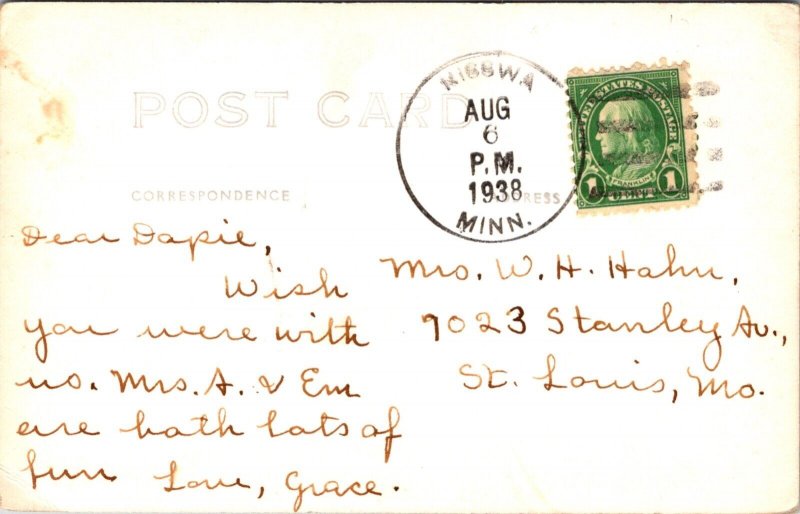 POST CARD
CORRESPONDENCE
ADDRESS
NISSWA
AUG
6
P.M.
1938
MINN.
UNITED STATES POSTAGE
FRANKLIN
1 CENT 1
Dear Dapie,
Wish
you were with
us. Mrs. A. & Em
are both lots of
fun Love, Grace.
Mrs. W. H. Hahn,
7023 Stanley Av.,
St. Louis, Mo.